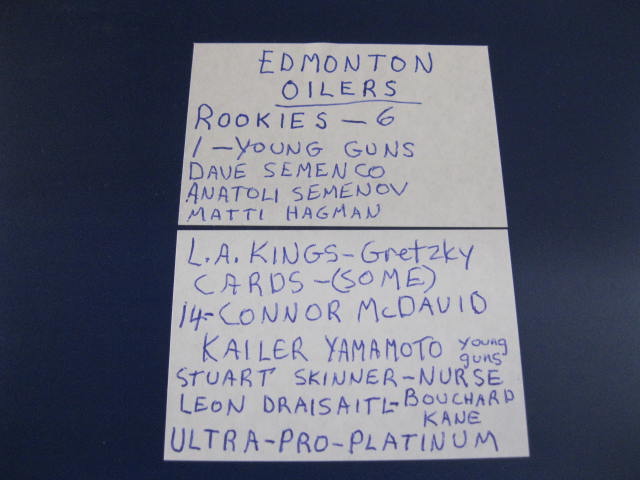 EDMONTON
OILERS
ROOKIES - 6
1 - YOUNG GUNS
DAVE SEMENCO
ANATOLI SEMENOV
MATTI HAGMAN
L.A. KINGS - Gretzky
CARDS - (SOME)
14 - CONNOR McDAVID
KAILER YAMAMOTO young guns
STUART SKINNER - NURSE
LEON DRAISAITL - BOUCHARD
KANE
ULTRA - PRO - PLATINUM